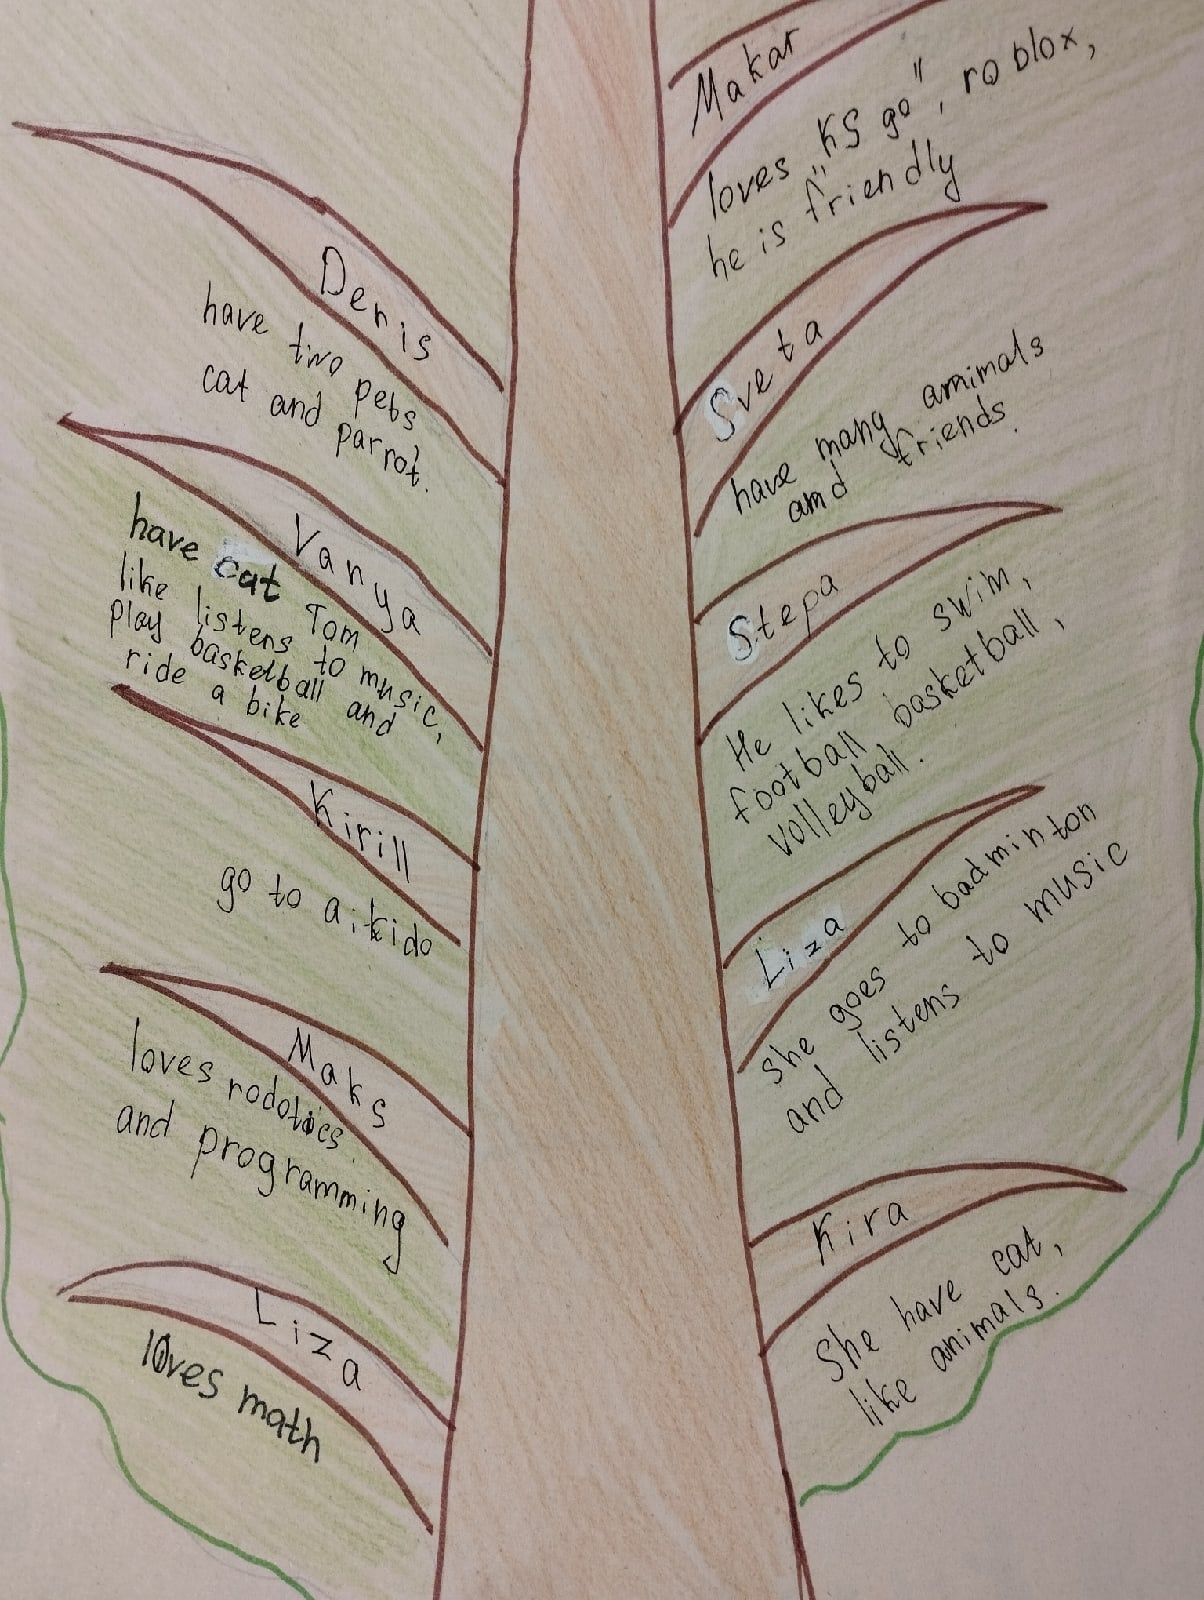 Denis
have two pets
cat and parrot.
Vanya
have cat Tom
like listens to music,
play basketball and
ride a bike
Kirill
go to aikido
Maks
loves rodotics
and programming
Liza
loves math
Makar
loves „KS go", roblox,
he is friendly
Sveta
have many amimals
amd friends.
Stepa
He likes to swim,
football basketball,
volleyball.
Liza
she goes to badminton
and listens to music
Kira
She have cat,
like animals.